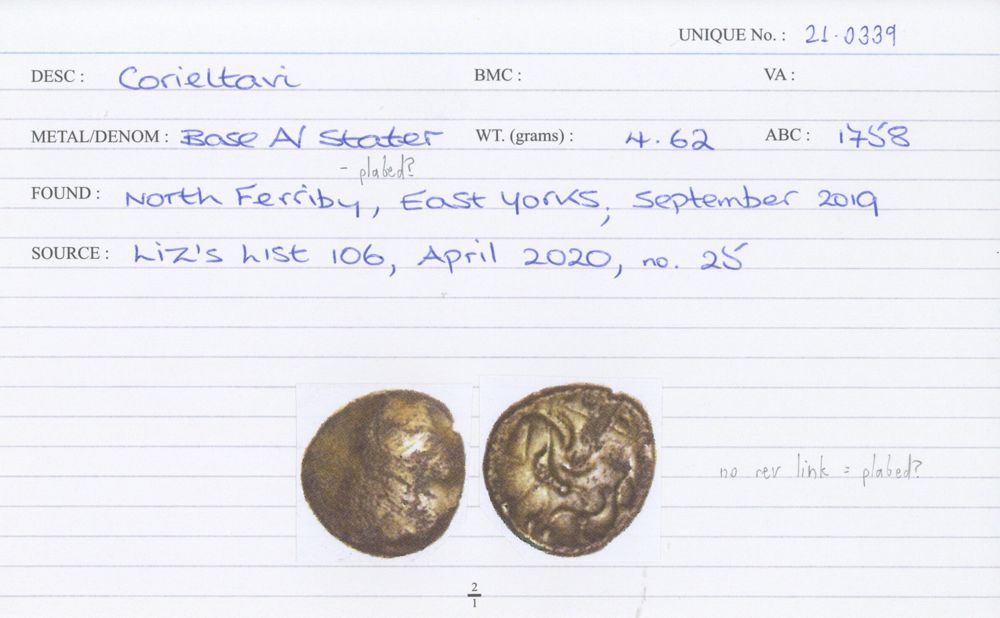 UNIQUE No. : 21·0339
DESC : Corieltavi BMC : VA :
METAL/DENOM : Base A/ Stater WT. (grams) : 4.62 ABC : 1758
- plated?
FOUND : North Ferriby, East Yorks, September 2019
SOURCE : Liz's List 106, April 2020, no. 25
no rev link = plated?
2
1